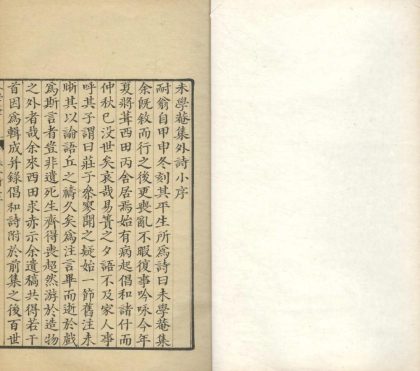 未學菴集外詩小序
耐翁自甲申冬刻其平生所爲詩曰未學菴集
余既敘而行之後更喪亂不暇復事吟咏今年
夏將葺西田丙舍居焉始有病起倡和諸什而
仲秋已没世矣哀哉易簀之夕語不及家人事
呼其子謂曰莊子參寥聞之疑始一節舊注未
晰其以論語丘之禱久矣爲注言畢而逝於戲
爲斯言者豈非遺死生齊得喪超然游於造物
之外者哉余來西田求赤示余遺稿共得若干
首因爲輯成并錄倡和詩附於前集之後百世